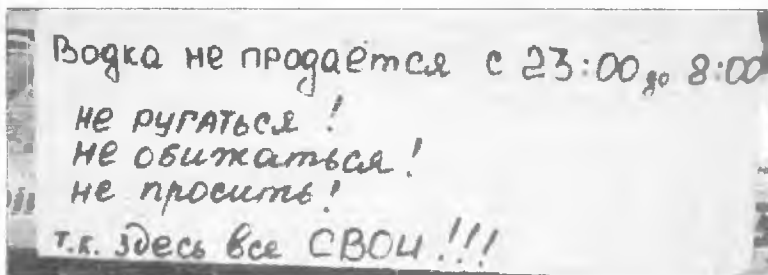 Водка не продаётся с 23:00 до 8:00
не ругаться!
не обижаться!
не просить!
т.к. здесь все СВОИ!!!